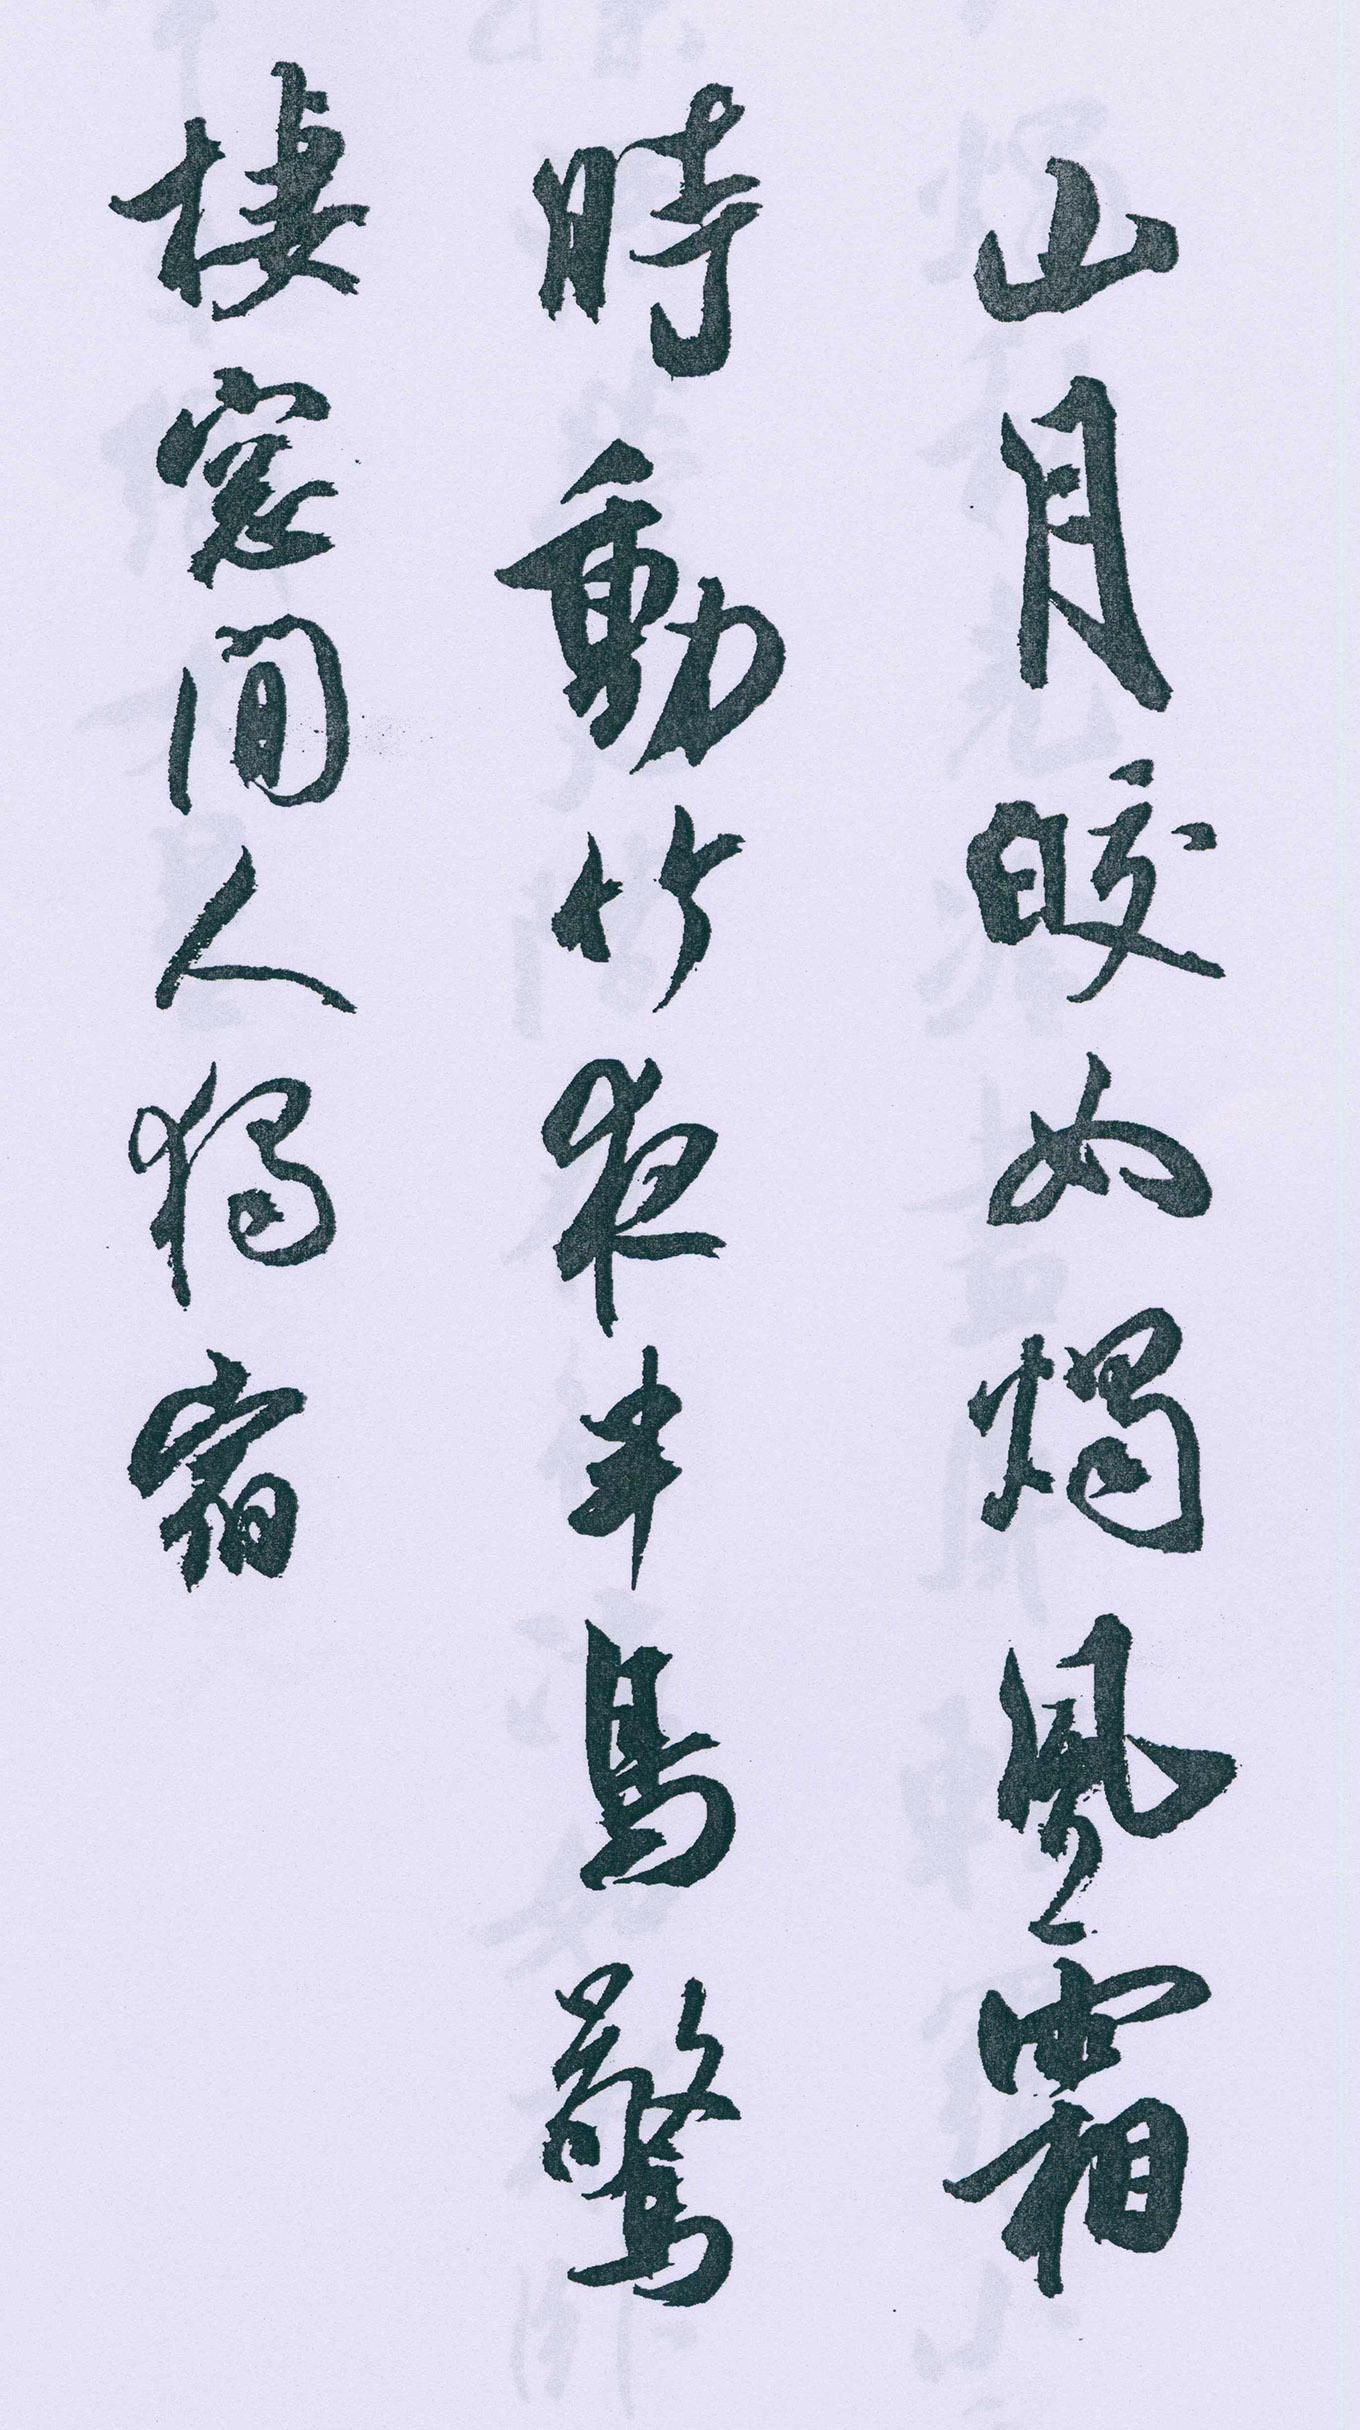 山月皎如燭風霜
時動竹夜半鳥驚
棲窓間人獨宿